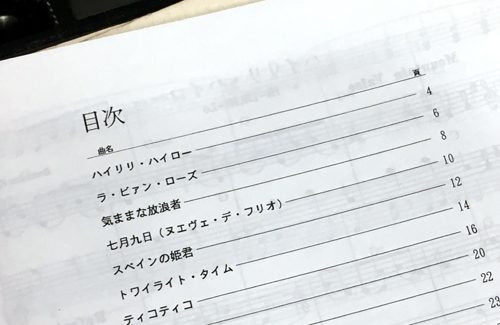 目次
曲名 頁
ハイリリ・ハイロー 4
ラ・ビアン・ローズ 6
気ままな放浪者 8
七月九日（ヌエヴェ・デ・フリオ） 10
スペインの姫君 12
トワイライト・タイム 14
ティコティコ 16
20
22
23